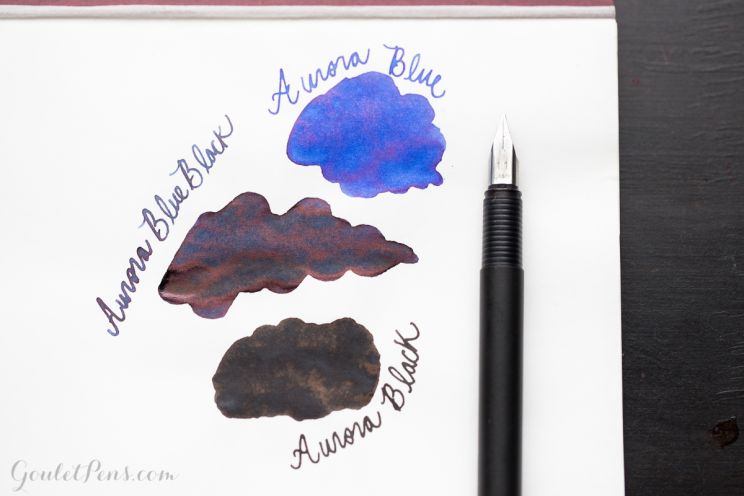 Aurora Blue
Aurora Blue Black
Aurora Black
GouletPens.com